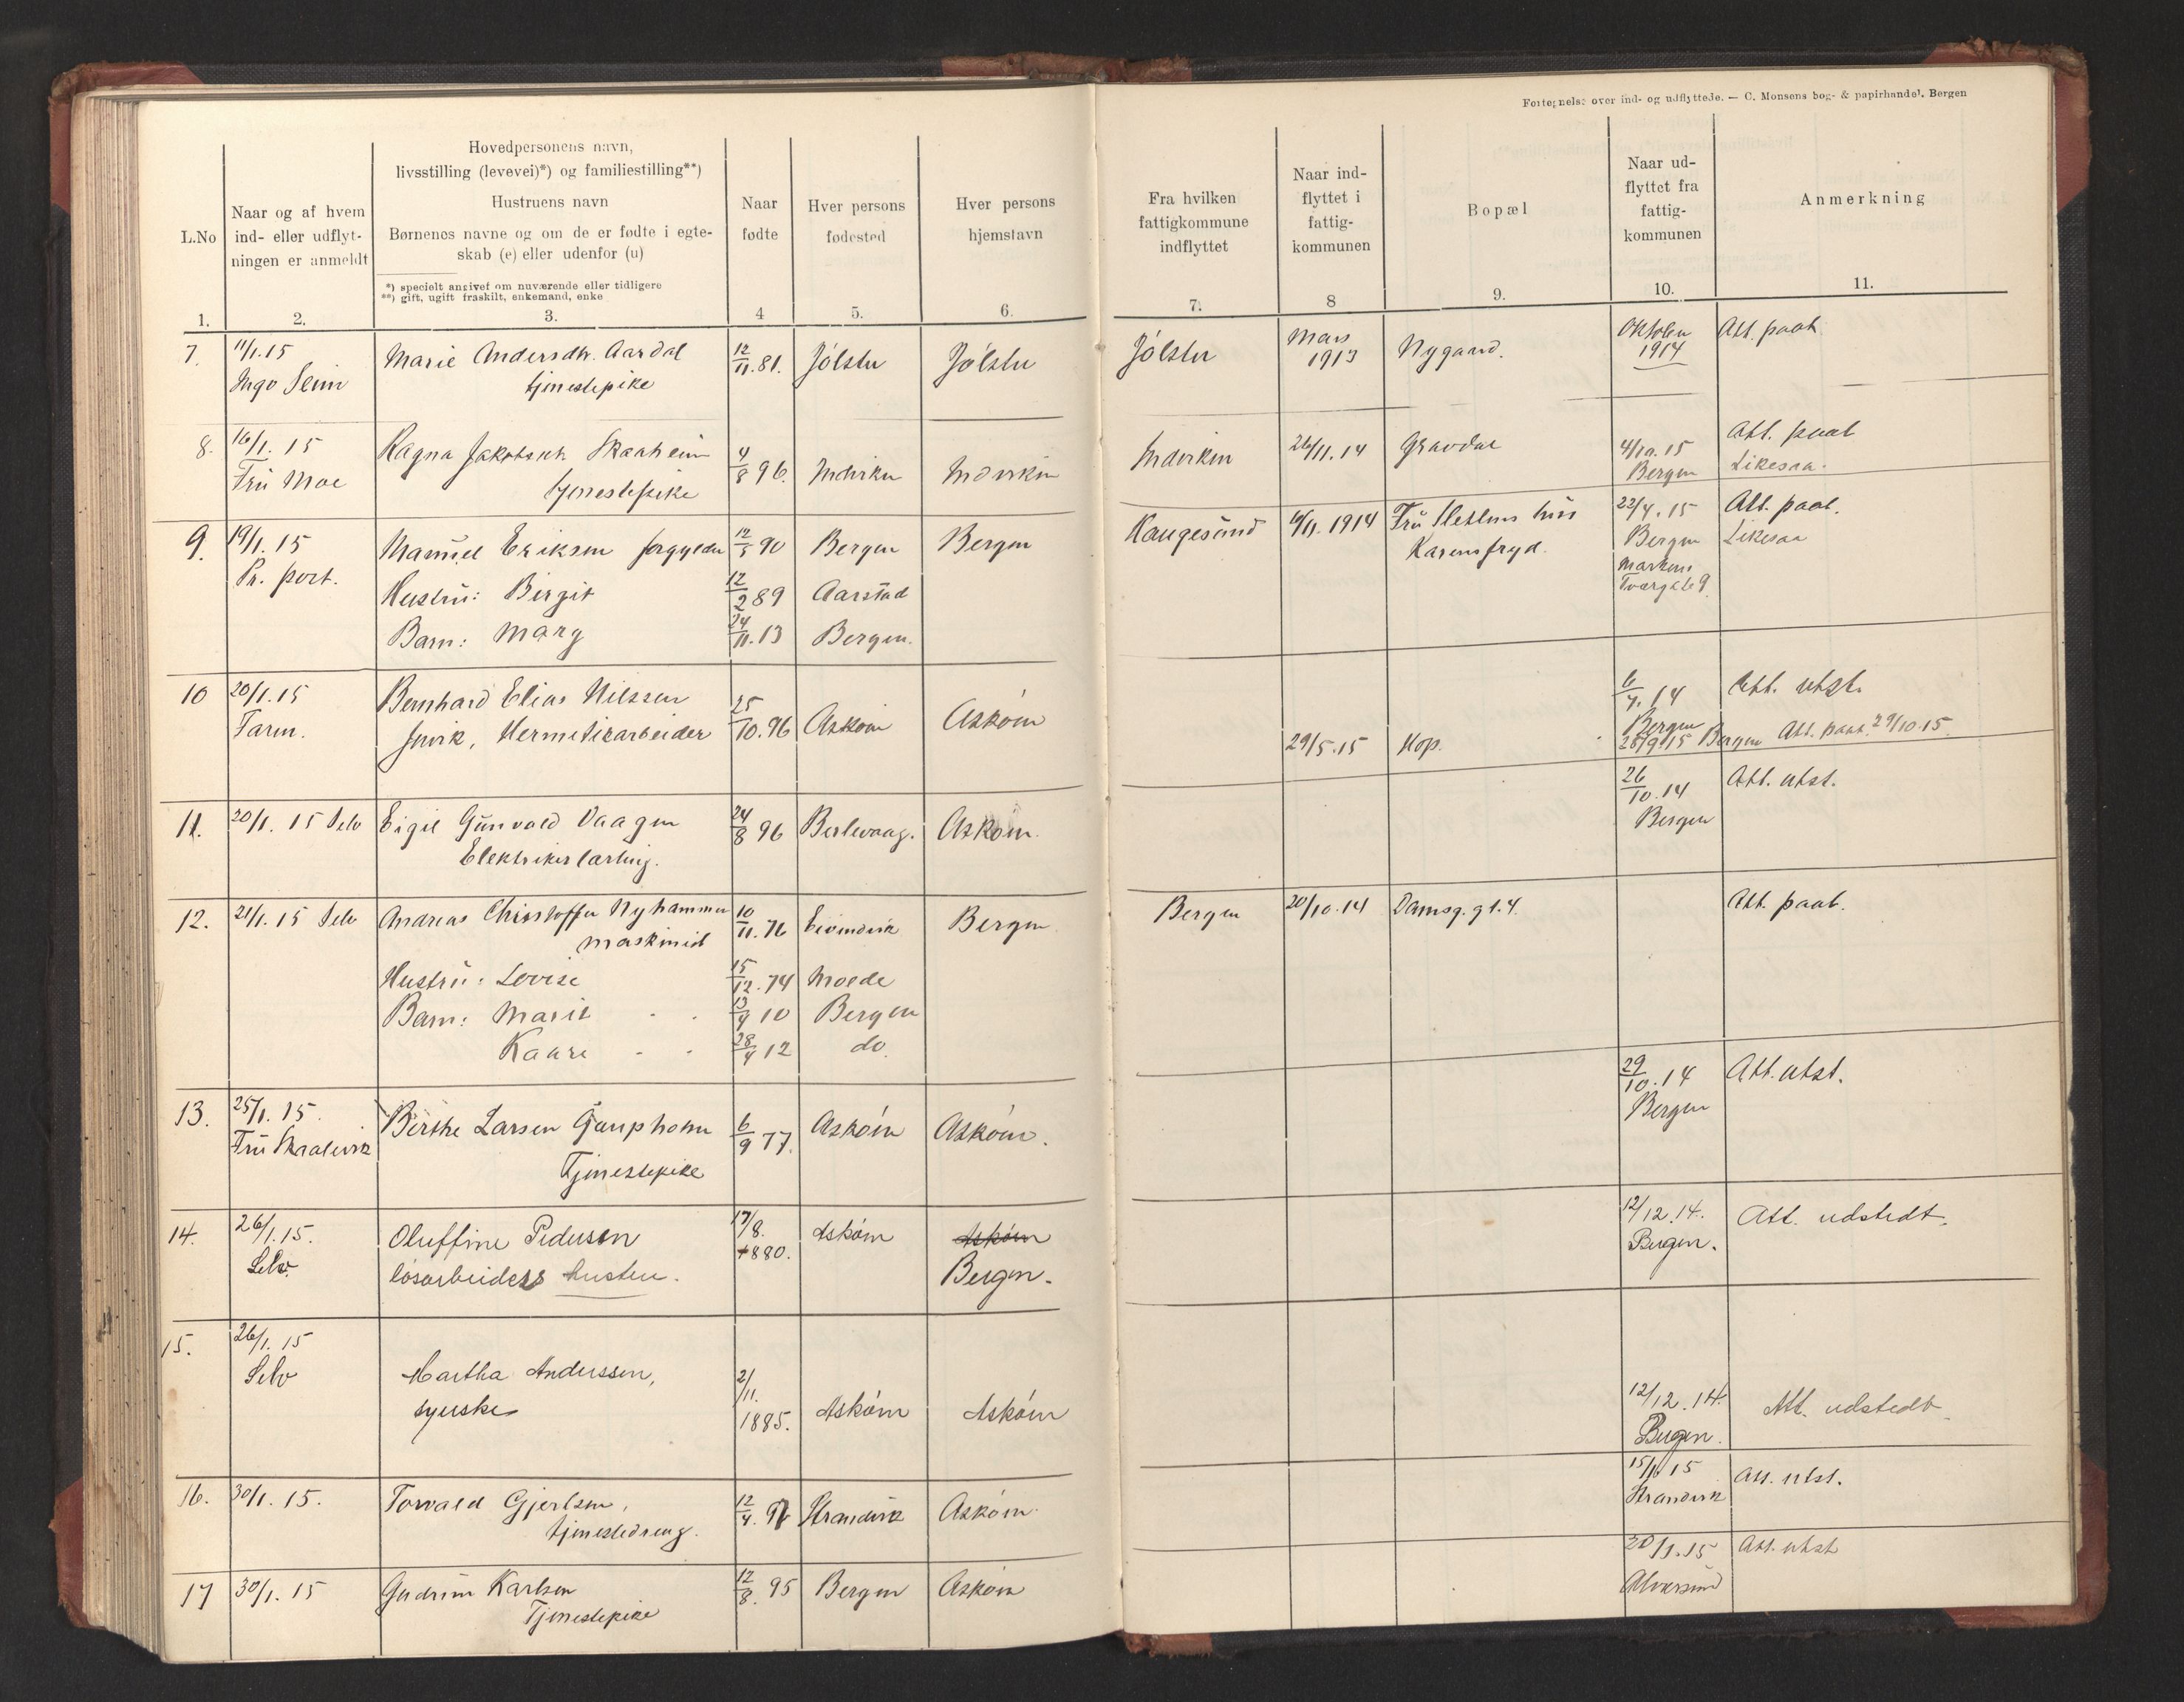 Fortegnelse over ind- og udflyttede. — C. Monsens bog- & papirhandel. Bergen
L.No
Naar og af hvem
ind- eller udflyt-
ningen er anmeldt
Hovedpersonens navn,
livsstilling (levevei)*) og familiestilling**)
Hustruens navn
Børnenes navne og om de er fødte i egte-
skab (e) eller udenfor (u)
*) specielt angivet om nuværende eller tidligere
**) gift, ugift fraskilt, enkemand, enke
Naar
fødte
Hver persons
fødested
Hver persons
hjemstavn
Fra hvilken
fattigkommune
indflyttet
Naar ind-
flyttet i
fattig-
kommunen
Bopæl
Naar ud-
flyttet fra
fattig-
kommunen
Anmerkning
1. 2. 3. 4 5. 6. 7. 8 9. 10. 11.
7. 11/1.15 Marie Andersdtr. Aardal 12/11.81. Jölster Jölster Jölster Mars 1913 Nygaard. Oktober 1914 Att. paat
tjenestepike
8. 16/1.15 Ragna Jakobsen Skaaheim 4/8 96. Indviken Indviken Indviken 26/11.14 Gravdal 4/10.15 Att. paat
Fru Moe tjenestepike Bergen Likesaa.
9. 19/1.15 Manuel Eriksen forgylder 12/5 90 Bergen Bergen Haugesund 6/11.1914 Fru Sletlens hus 22/4.15 Att. paat.
Pr. port. Karensfryd. Bergen Likesaa
Hustru: Birgit 12/2 89 Aarstad Markens
Tvergate 9.
Barn: Marg 24/11.13 Bergen.
10 20/1.15 Bernhard Elias Nilssen 25/10.96 Asköin Asköin 6/7.14 Att. utst.
Juvik, Hermetikarbeider Bergen
29/5.15 Hop. 28/9.15 Bergen Att. paat. 29/10.15.
11. 20/1.15 Selv Eigil Gunvald Vaagen 24/8 96 Berlevaag. Asköin. 26/10.14 Att. utst.
Elektrikerlærling. Bergen
12. 21/1.15 Selv Andreas Christoffer Nyhammer 10/11.76 Eivindvik Bergen Bergen 20/10.14 Damsg. gt. 4. Att. paat.
maskinist
Hustru: Lovise 15/12.74 Molde
Barn: Marie 13/4 10 Bergen
Kaare 28/4 12 do.
13. 25/1.15. Berthe Larsen Gaupholm 6/9 77. Asköin Asköin. 29/10.14 Att. utst.
Fru Skaalevik Tjenestepike Bergen
14. 26/1.15. Oluffine Pedersen 17/8. 1880. Asköin Asköin 12/12.14. Att. udstedt.
Selv. lösarbeiders hustru. Bergen. Bergen.
15. 26/1.15 Martha Anderssen, 2/11. 1885. Asköin Asköin 12/12.14. Att. udstedt.
Selv syerske Bergen.
16. 30/1.15. Torvald Gjertsen, 12/4. Strandvik Asköin 15/1 15 Att. utst.
tjenestedreng. Strandvik
17 30/1.15 Gudrun Karlsen 12/8. 95 Bergen Asköin 20/1.15 Att. utst
Tjenestepike Alversund